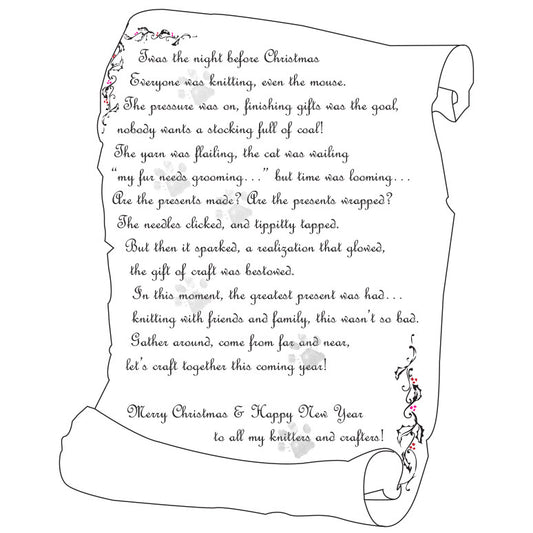 Twas the night before Christmas
Everyone was knitting, even the mouse.
The pressure was on, finishing gifts was the goal,
nobody wants a stocking full of coal!
The yarn was flailing, the cat was wailing
“my fur needs grooming...” but time was looming...
Are the presents made? Are the presents wrapped?
The needles clicked, and tippitty tapped.
But then it sparked, a realization that glowed,
the gift of craft was bestowed.
In this moment, the greatest present was had...
knitting with friends and family, this wasn't so bad.
Gather around, come from far and near,
let's craft together this coming year!
Merry Christmas & Happy New Year
to all my knitters and crafters!